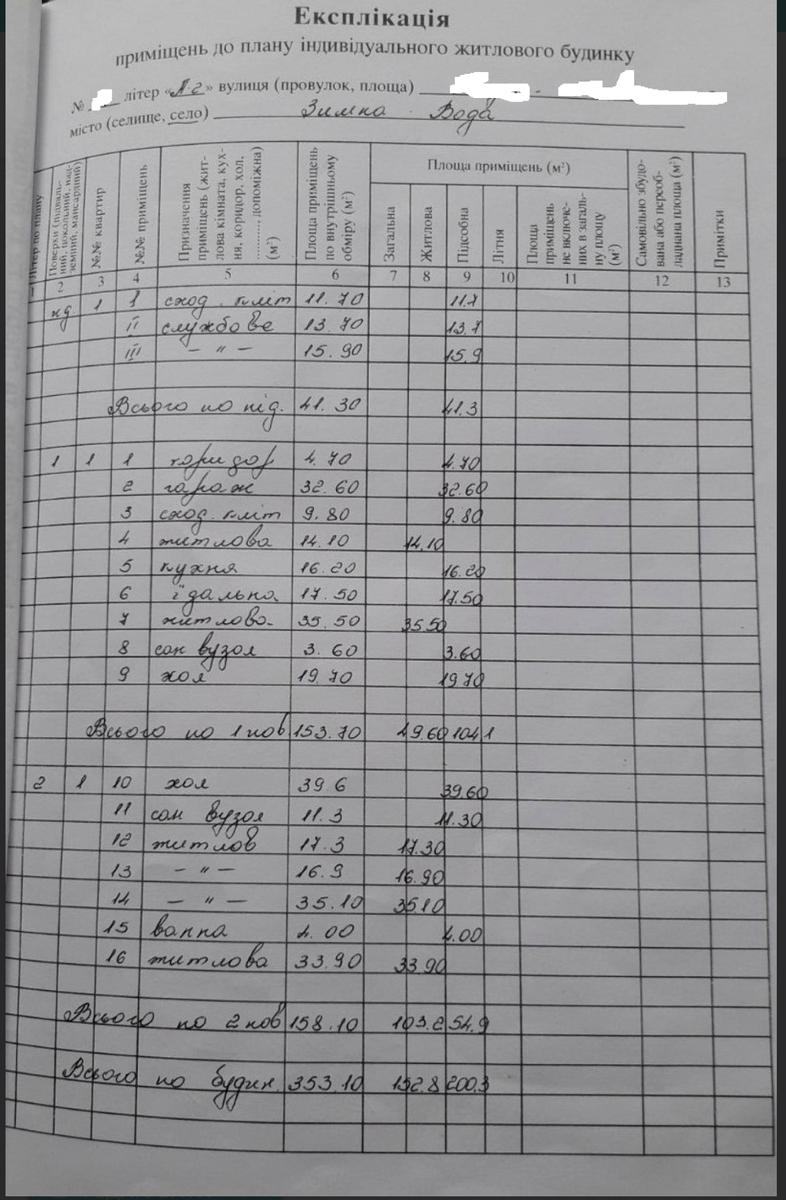 Експлікація
приміщень до плану індивідуального житлового будинку
№ літер «А-2» вулиця (провулок, площа)
місто (селище, село) Зимна Вода
Літер по плану
Поверхи (підвальний, цокольний, надземний, мансардний)
№№ квартир
№№ приміщень
Призначення приміщень (житлова кімната, кухня, коридор, хол, ............ допоміжна) (м²)
Площа приміщень по внутрішньому обміру (м²)
Площа приміщень (м²)
Загальна
Житлова
Підсобна
Літня
Площа приміщень не включених в загальну площу (м²)
Самовільно збудована або переобладнана площа (м²)
Примітки
1 2 3 4 5 6 7 8 9 10 11 12 13
пд 1 I сход. кліт 11.70 11.7
II службове 13.70 13.7
III – " – 15.90 15.9
Всього по під. 41.30 41.3
1 1 1 коридор 4.70 4.70
2 гараж 32.60 32.60
3 сход. кліт 9.80 9.80
4 житлова 14.10 14.10
5 кухня 16.20 16.20
6 їдальна 17.50 17.50
7 житлова 35.50 35.50
8 сан вузол 3.60 3.60
9 хол 19.70 19.70
Всього по 1 пов 153.70 49.60 104.1
2 1 10 хол 39.6 39.60
11 сан вузол 11.3 11.30
12 житлов 17.3 17.30
13 – " – 16.9 16.90
14 – " – 35.10 35.10
15 ванна 4.00 4.00
16 житлова 33.90 33.90
Всього по 2 пов 158.10 103.2 54.9
Всього по будин. 353.10 152.8 200.3